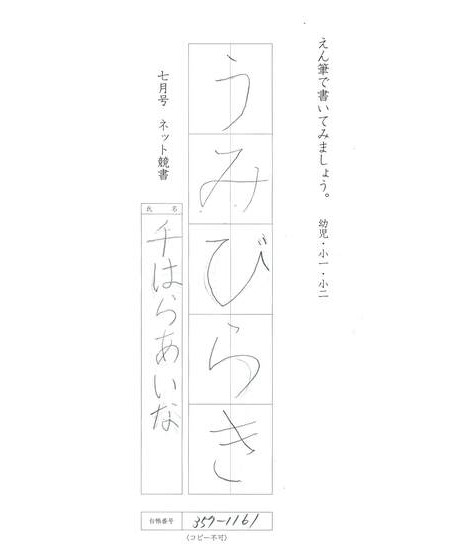 えん筆で書いてみましょう。 幼児・小一・小二
うみびらき
七月号 ネット競書
氏名
千はらあいな
台帳番号 357-1161
(コピー不可)